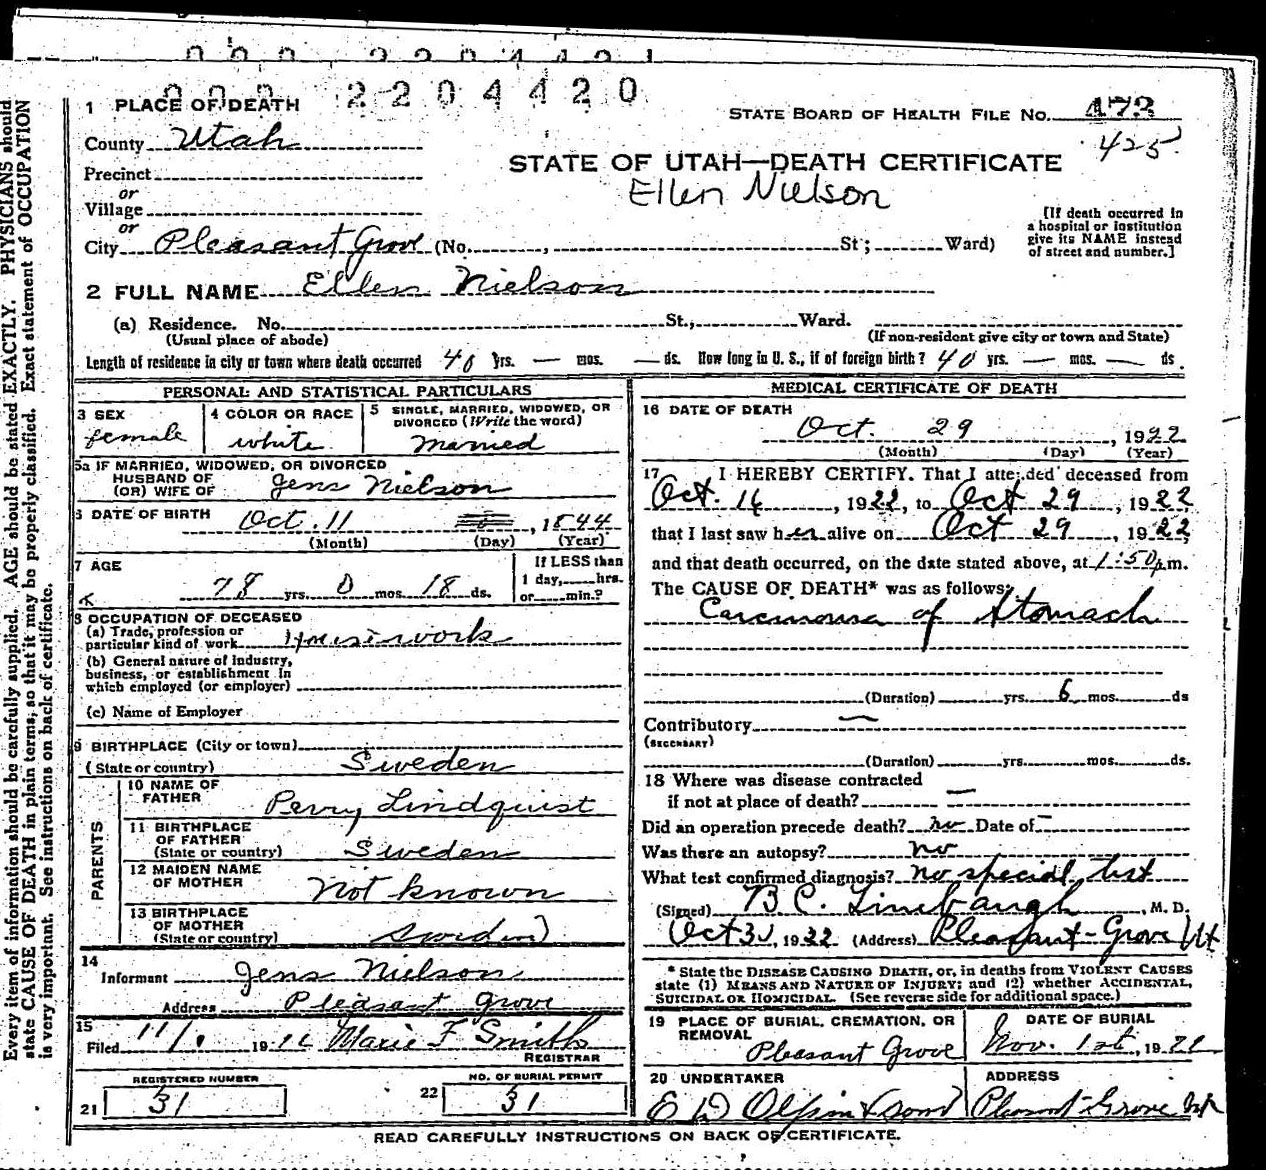 000 2204421
000 2204420
1 PLACE OF DEATH
STATE BOARD OF HEALTH FILE No. 473
425
County Utah
STATE OF UTAH—DEATH CERTIFICATE
Ellen Nielson
Precinct
or
Village
or
City Pleasant Grove (No. , St; Ward)
[If death occurred in
a hospital or institution
give its NAME instead
of street and number.]
2 FULL NAME Ellen Nielson
(a) Residence. No. St., Ward.
(Usual place of abode)
(If non-resident give city or town and State)
Length of residence in city or town where death occurred 40 Yrs. — mos. — ds. How long in U. S., if of foreign birth? 40 yrs. — mos. — ds.
PERSONAL AND STATISTICAL PARTICULARS
3 SEX
female
4 COLOR OR RACE
white
5 SINGLE, MARRIED, WIDOWED, OR
DIVORCED (Write the word)
Married
5a IF MARRIED, WIDOWED, OR DIVORCED
HUSBAND OF
(OR) WIFE OF Jens Nielson
6 DATE OF BIRTH Oct. 11, 1844
(Month) (Day) (Year)
7 AGE
78 yrs. 0 mos. 18 ds.
If LESS than
1 day, hrs.
or min.?
8 OCCUPATION OF DECEASED
(a) Trade, profession or
particular kind of work Housework
(b) General nature of industry,
business, or establishment in
which employed (or employer)
(c) Name of Employer
9 BIRTHPLACE (City or town)
(State or country) Sweden
PARENTS
10 NAME OF
FATHER Perry Lindquist
11 BIRTHPLACE
OF FATHER
(State or country) Sweden
12 MAIDEN NAME
OF MOTHER Not known
13 BIRTHPLACE
OF MOTHER
(State or country) Sweden
14
Informant Jens Nielson
Address Pleasant Grove
15
Filed 11/1 19 Marie F Smith
REGISTRAR
REGISTERED NUMBER
21 31
NO. OF BURIAL PERMIT
22 31
MEDICAL CERTIFICATE OF DEATH
16 DATE OF DEATH
Oct. 29, 1922
(Month) (Day) (Year)
17 I HEREBY CERTIFY. That I attended deceased from
Oct. 14, 1922, to Oct 29, 1922
that I last saw her alive on Oct 29, 1922
and that death occurred, on the date stated above, at 1:50 p.m.
The CAUSE OF DEATH* was as follows:
Carcinoma of Stomach
(Duration) yrs. 6 mos. ds
Contributory —
(SECONDARY)
(Duration) yrs. mos. ds.
18 Where was disease contracted
if not at place of death? —
Did an operation precede death? no Date of —
Was there an autopsy? no
What test confirmed diagnosis? no special test
(Signed) B C. Linebaugh, M. D.
Oct 30, 1922 (Address) Pleasant-Grove Ut
* State the DISEASE CAUSING DEATH, or, in deaths from VIOLENT CAUSES
state (1) MEANS AND NATURE OF INJURY; and (2) whether ACCIDENTAL,
SUICIDAL OR HOMICIDAL. (See reverse side for additional space.)
19 PLACE OF BURIAL, CREMATION, OR
REMOVAL
Pleasant Grove
DATE OF BURIAL
Nov. 1st, 1922
20 UNDERTAKER
E W Olpin & Sons
ADDRESS
Pleasant Grove
READ CAREFULLY INSTRUCTIONS ON BACK OF CERTIFICATE.
Every item of information should be carefully supplied. AGE should be stated EXACTLY. PHYSICIANS should
state CAUSE OF DEATH in plain terms, so that it may be properly classified. Exact statement of OCCUPATION
is very important. See instructions on back of certificate.